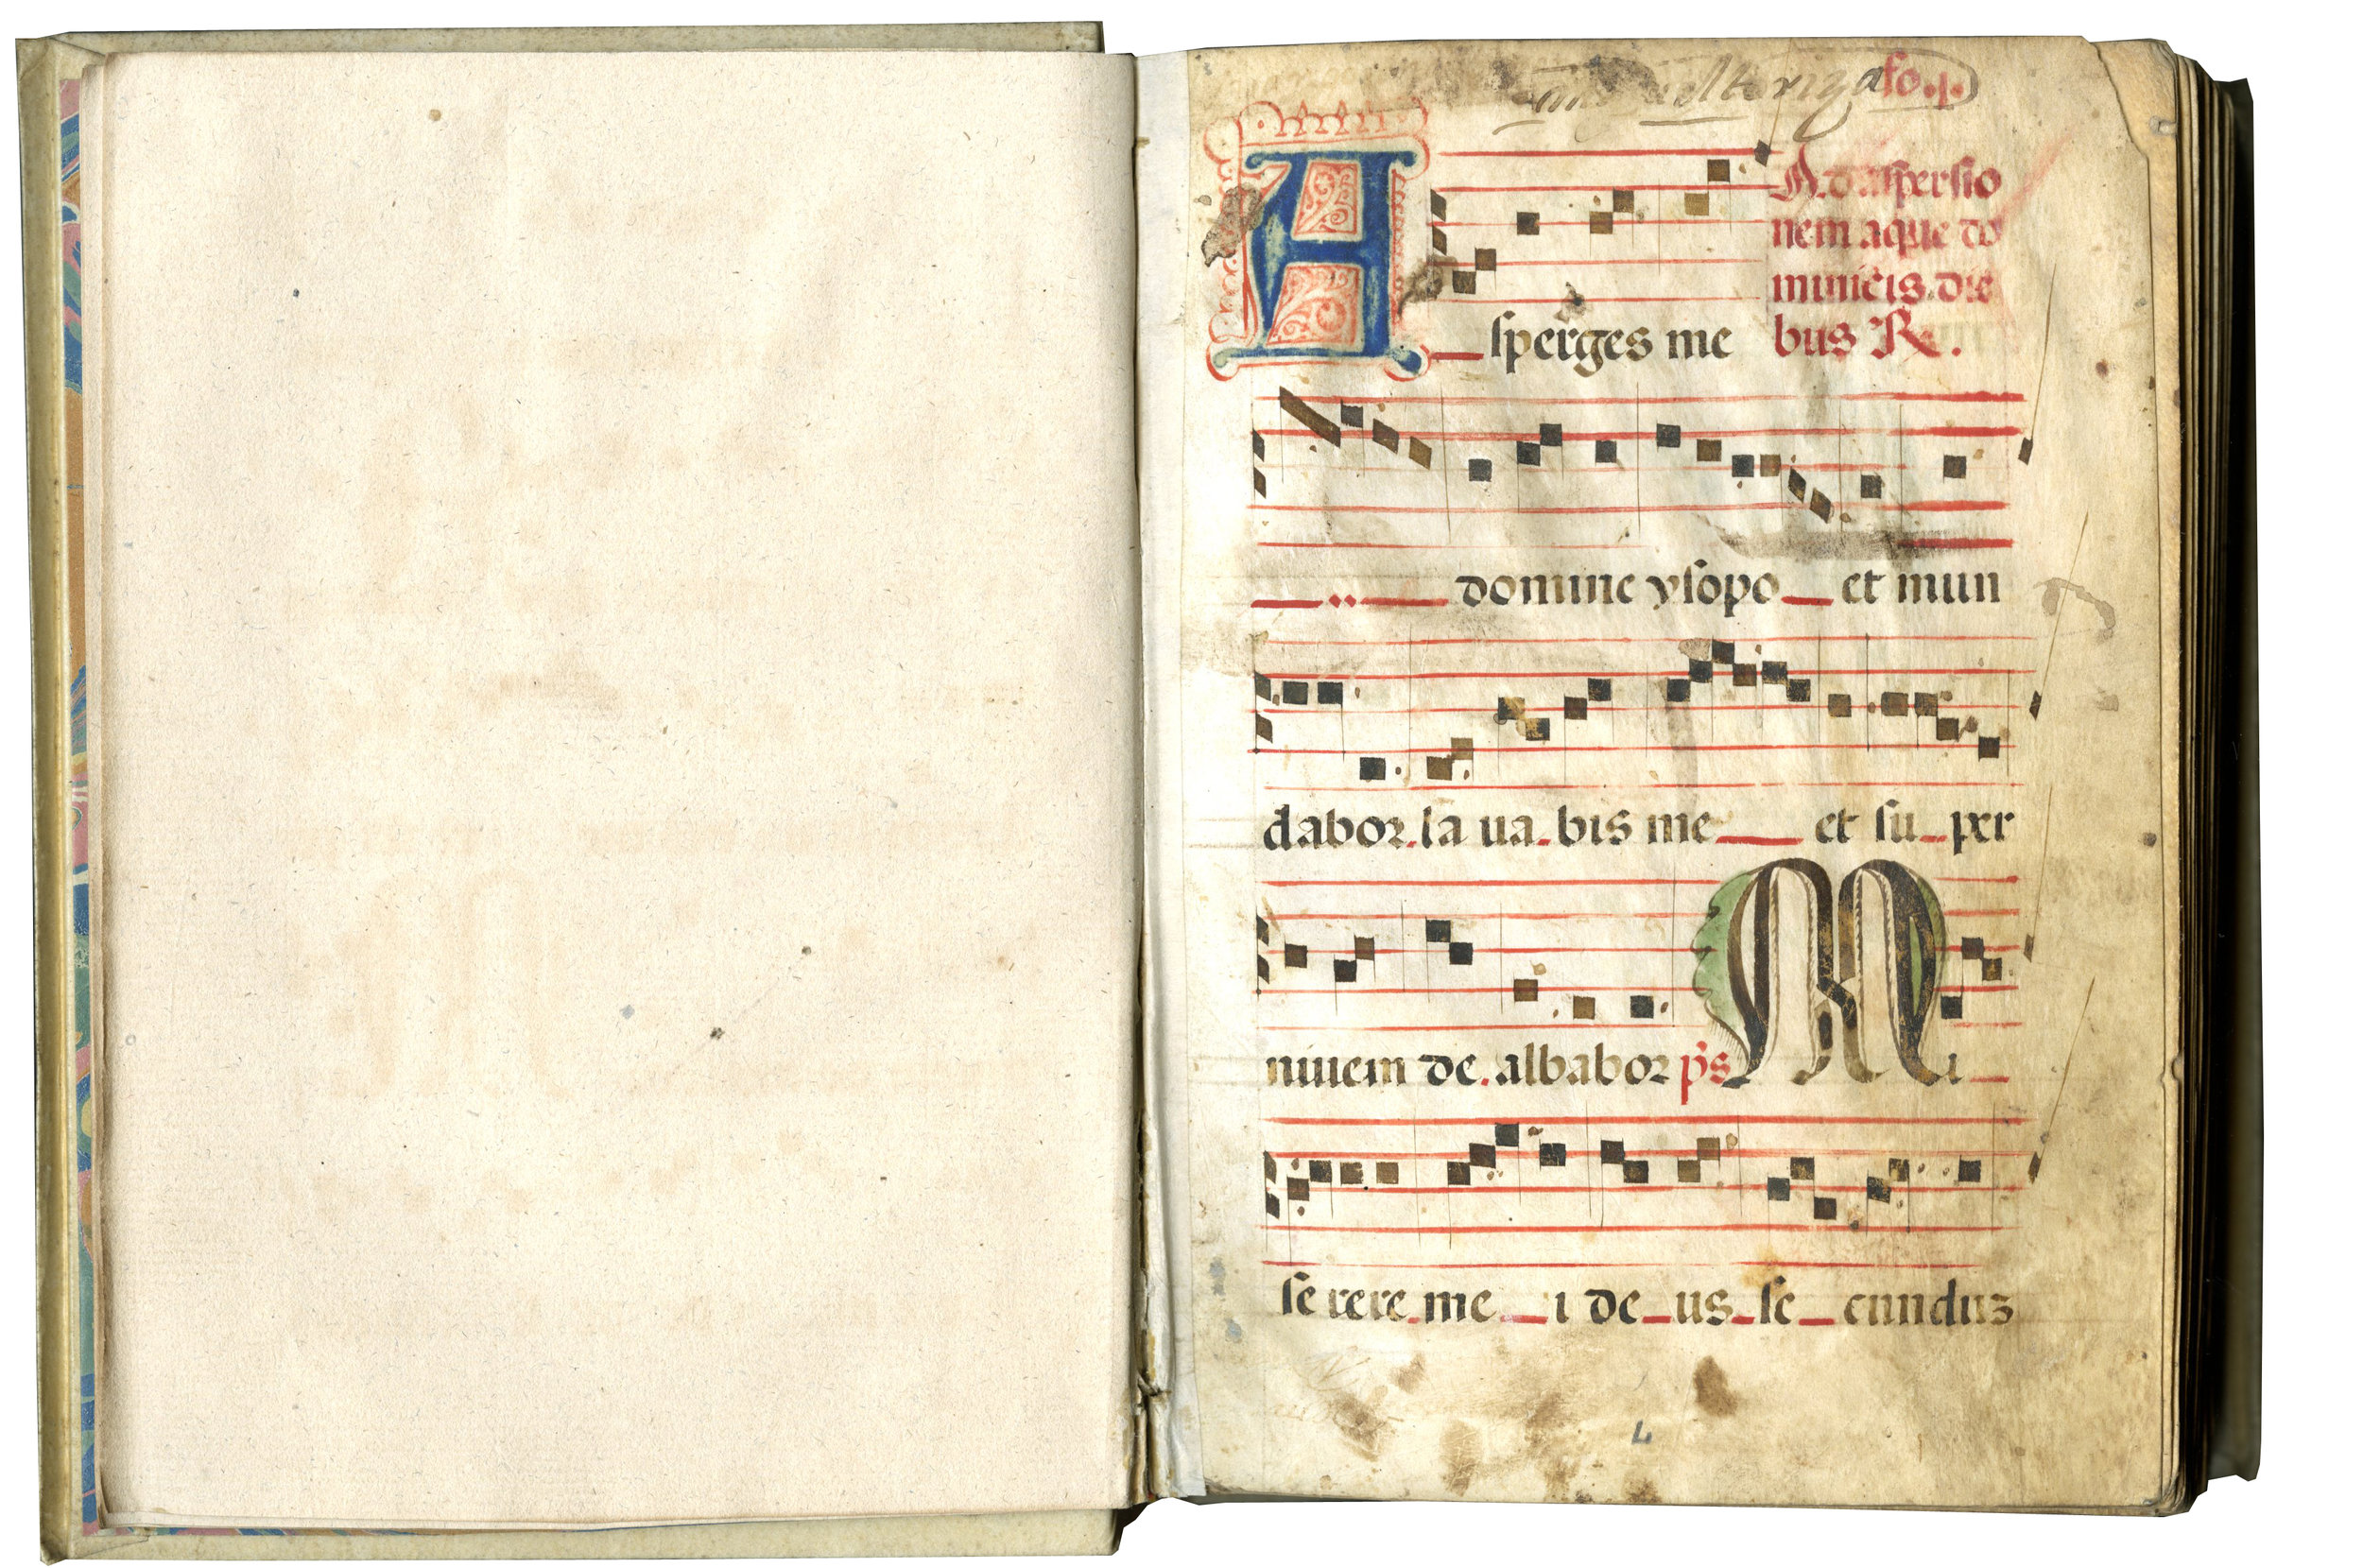 fo. j.
A d aspersio
nem aque do
minicis die
bus R.
A sperges me
domine ysopo et mun
dabor. la ua. bis me et su per
niuem de. albabor ps M i
se rere me i de us se cunduz